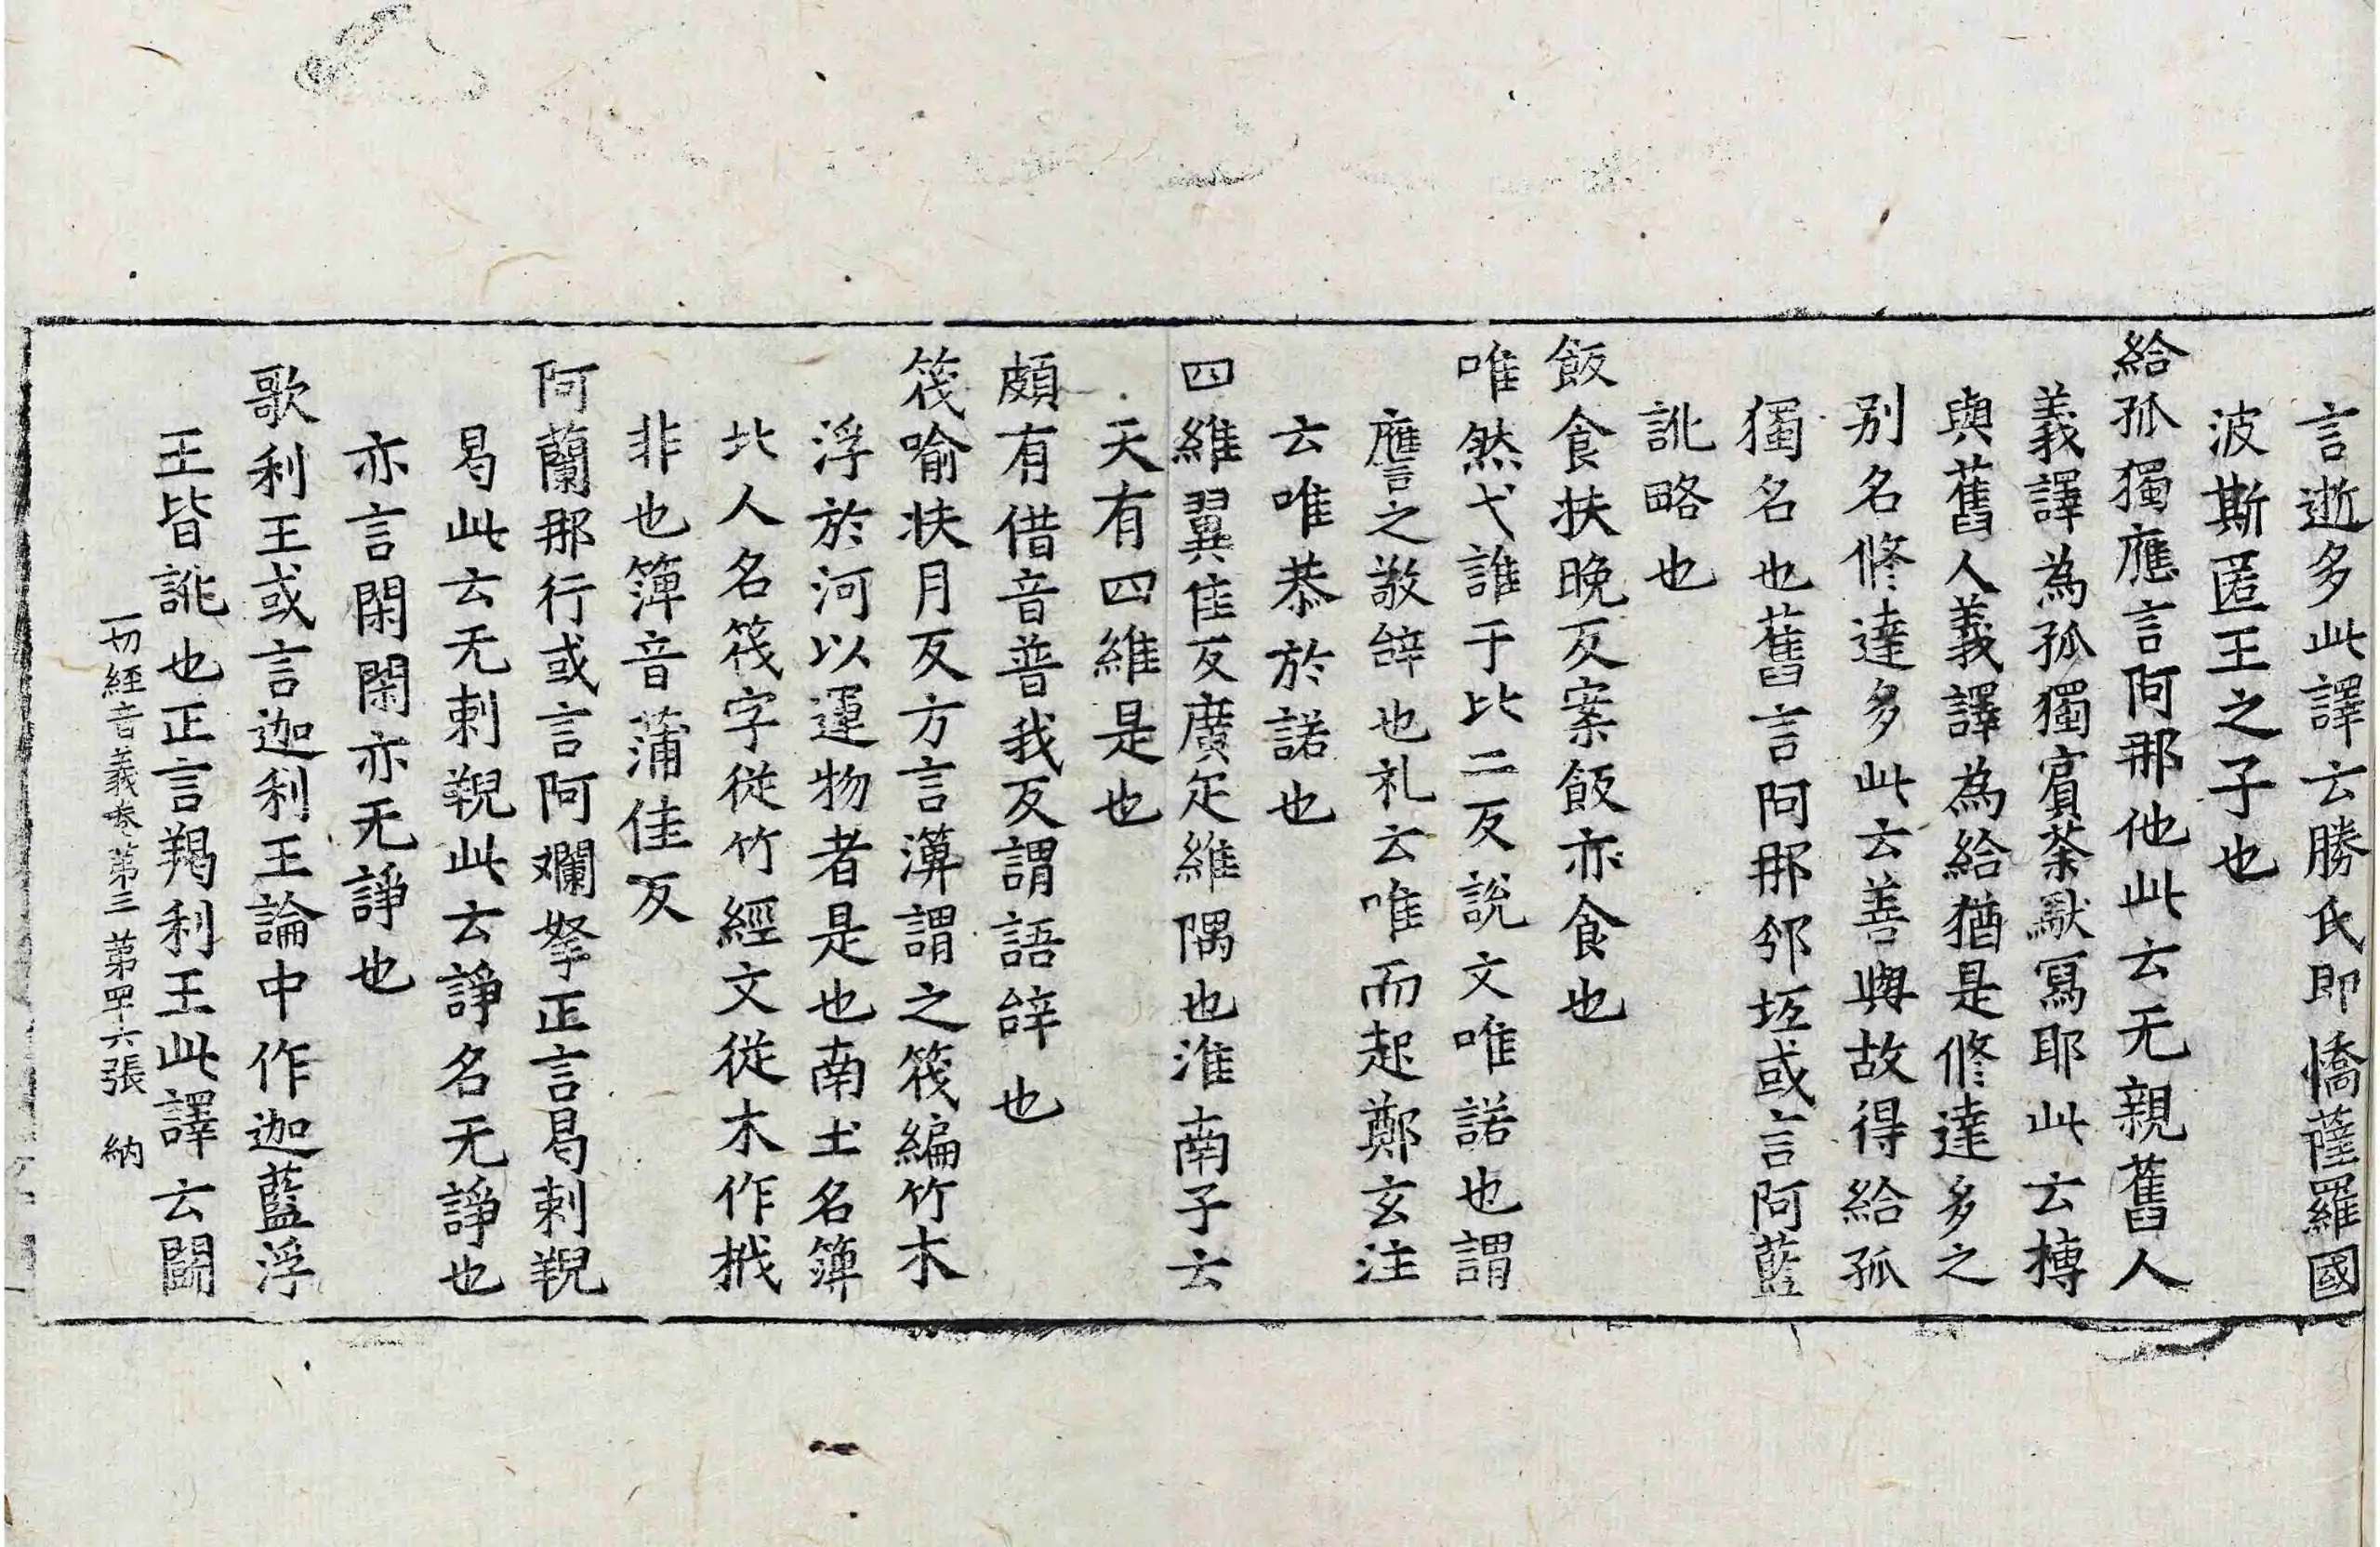 言逝多此譯云勝氏即憍薩羅國
波斯匿王之子也
給孤獨應言阿那他此云无親舊人
義譯為孤獨賓荼馱寫耶此云摶
與舊人義譯為給猶是修達多之
別名修達多此云善與故得給孤
獨名也舊言阿那邠坻或言阿藍
訛略也
飯食扶晚反案飯亦食也
唯然弋誰于比二反說文唯諾也謂
應之敬辝也礼云唯而起鄭玄注
云唯恭於諾也
四維翼隹反廣疋維隅也淮南子云
天有四維是也
頗有借音普我反謂語辝也
筏喻扶月反方言簿謂之筏編竹木
浮於河以運物者是也南土名簿
北人名筏字從竹經文從木作栰
非也簿音蒲佳反
阿蘭那行或言阿爛拏正言曷剌䫂
曷此云无剌䫂此云諍名无諍也
亦言閑閑亦无諍也
歌利王或言迦利王論中作迦藍浮
王皆訛也正言羯利王此譯云鬪
一切經音義卷第三 第四十六張 納